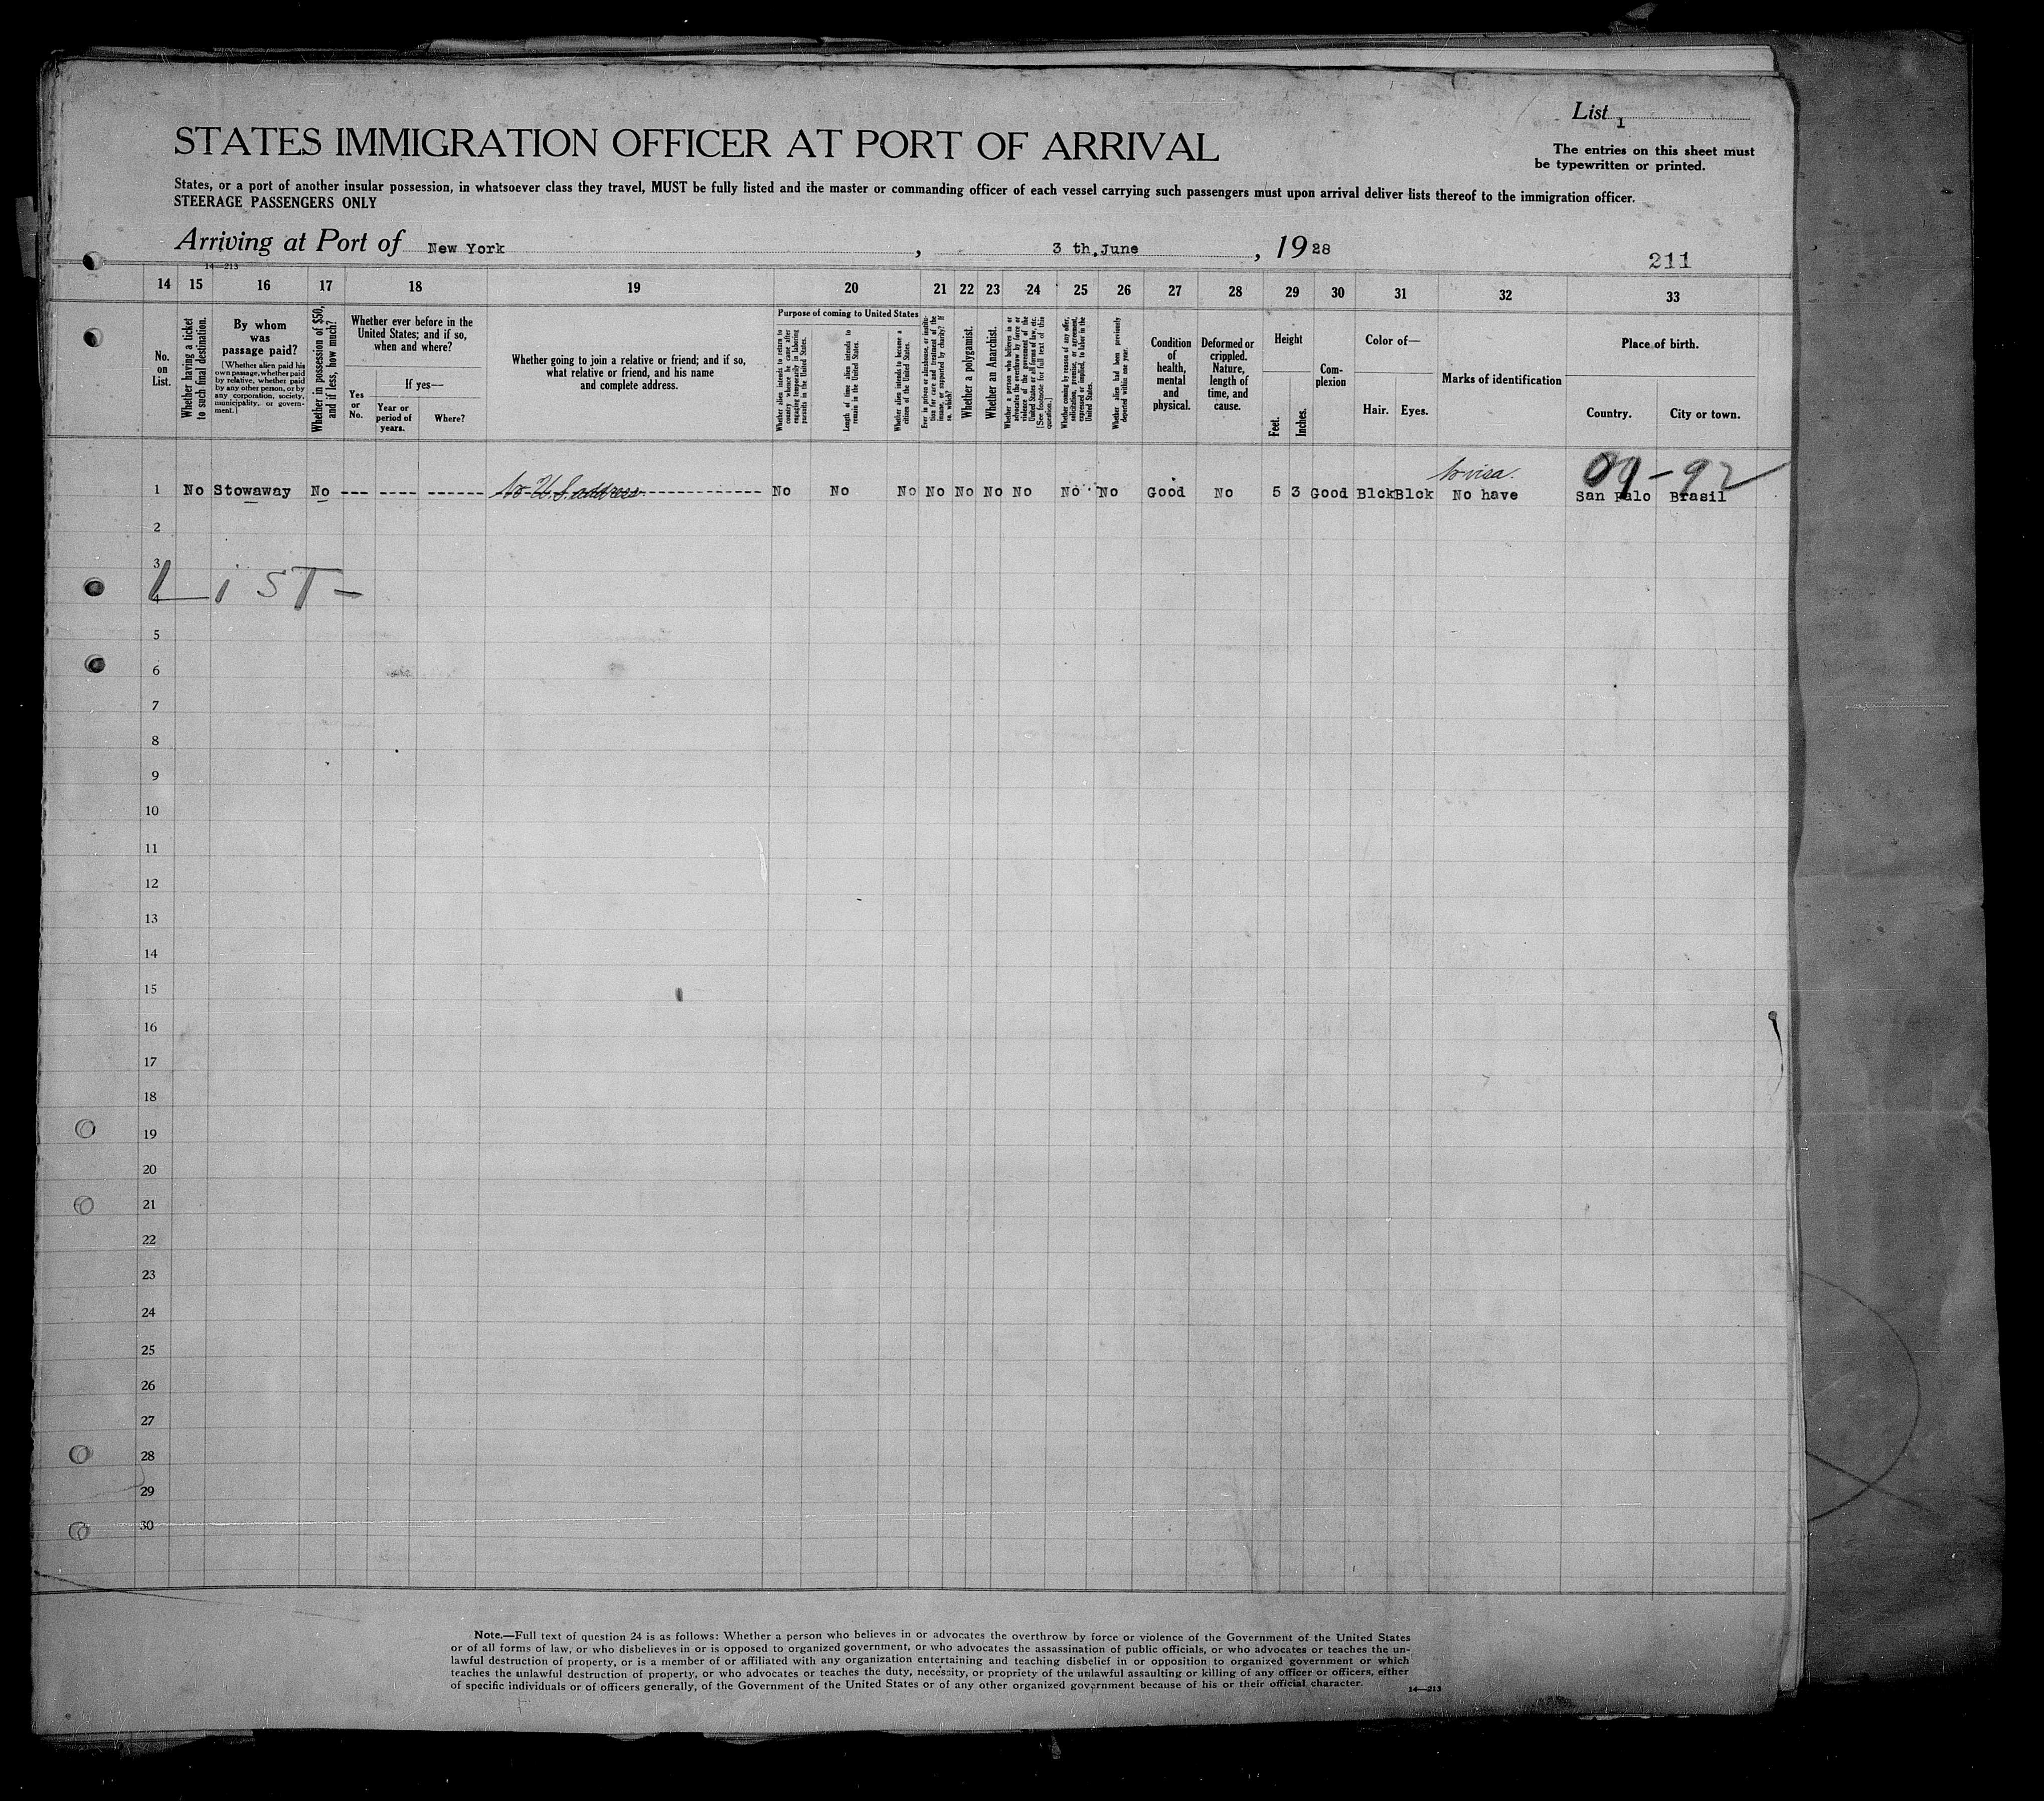 List 1
STATES IMMIGRATION OFFICER AT PORT OF ARRIVAL
The entries on this sheet must
be typewritten or printed.
States, or a port of another insular possession, in whatsoever class they travel, MUST be fully listed and the master or commanding officer of each vessel carrying such passengers must upon arrival deliver lists thereof to the immigration officer.
STEERAGE PASSENGERS ONLY
Arriving at Port of New York, 3 th. June, 1928
211
14—213
14 15 16 17 18 19 20 21 22 23 24 25 26 27 28 29 30 31 32 33
No.
on
List.
Whether having a ticket
to such final destination.
By whom
was
passage paid?
[Whether alien paid his
own passage, whether paid
by relative, whether paid
by any other person, or by
any corporation, society,
municipality, or govern-
ment.]
Whether in possession of $50,
and if less, how much?
Whether ever before in the
United States; and if so,
when and where?
Yes
or
No.
If yes—
Year or
period of
years.
Where?
Whether going to join a relative or friend; and if so,
what relative or friend, and his name
and complete address.
Purpose of coming to United States
Whether alien intends to return to
country whence he came after
engaging temporarily in laboring
pursuits in the United States.
Length of time alien intends to
remain in the United States.
Whether alien intends to become a
citizen of the United States.
Ever in prison or almshouse, or institu-
tion for care and treatment of the
insane, or supported by charity? If
so, which?
Whether a polygamist.
Whether an Anarchist.
Whether a person who believes in or
advocates the overthrow by force or
violence of the Government of the
United States or all forms of law, etc.
[See footnote for full text of this
question.]
Whether coming by reason of any offer,
solicitation, promise, or agreement,
expressed or implied, to labor in the
United States.
Whether alien had been previously
deported within one year.
Condition
of
health,
mental
and
physical.
Deformed or
crippled.
Nature,
length of
time, and
cause.
Height
Feet.
Inches.
Com-
plexion
Color of—
Hair. Eyes.
Marks of identification
Place of birth.
Country. City or town.
No visa. 09-92
1 No Stowaway No --- ---- ------ No U.S. address ------------ No No No No No No No No No Good No 5 3 Good Blck Blck No have San Palo Brasil
2
3
LiST-
4
5
6
7
8
9
10
11
12
13
14
15
16
17
18
19
20
21
22
23
24
25
26
27
28
29
30
Note.—Full text of question 24 is as follows: Whether a person who believes in or advocates the overthrow by force or violence of the Government of the United States
or of all forms of law, or who disbelieves in or is opposed to organized government, or who advocates the assassination of public officials, or who advocates or teaches the un-
lawful destruction of property, or is a member of or affiliated with any organization entertaining and teaching disbelief in or opposition to organized government or which
teaches the unlawful destruction of property, or who advocates or teaches the duty, necessity, or propriety of the unlawful assaulting or killing of any officer or officers, either
of specific individuals or of officers generally, of the Government of the United States or of any other organized government because of his or their official character.
14—213